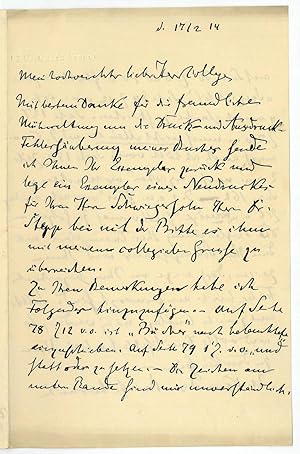 d. 17/2 14
Mein hochverehrter lieber Herr College
Mit bestem Danke für die freundliche
Mitwirkung um die Druck und Ausdruck-
Fehlersäuberung meines Buches sende
ich Ihnen Ihr Exemplar zurück und
lege ein Exemplar eines Neudruckes
für Ihren Herrn Schwiegersohn Herrn Dr.
Stepp bei mit der Bitte es ihm
mit meinem collegialen Grusse zu
überreichen.
Zu Ihren Bemerkungen habe ich
Folgendes hinzuzufügen. – auf Seite
78 Z 12 v. o. ist „Bücher" nach
einzuschieben. auf Seite 79 1 Z. v. o. „und
statt oder zu setzen. – Die Zeichen am
unteren Rande sind mir unverständlich.